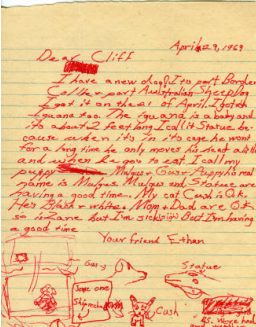 April 29, 1969
Dear Cliff
I have a new dog. Its part Border
Collie part Australian Sheepdog
I got it on the 21 of April. I got ah
Iguana too. The Iguana is a baby and
its about 2 feet long I call it Statue be-
cause when its in its cage he wont
for a long time he only moves his head a little
and when he goes to eat. I call my
puppy Mulgus Gus-Puppy his real
name is Mulgus. Mulgus and Statue are
having a good time. My cat Cash is O.K.
Hes Black + white. Mom + Dad are OK
so is Zane but I'm sick. Im having
a good time
Your friend Ethan
Gus
Statue
Cash
P.S. Weve had